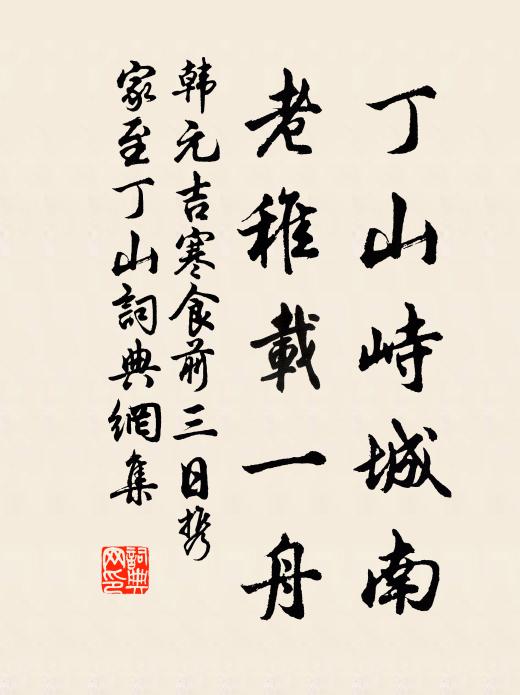 丁山峙城南
老稚載一舟
韩元吉寒食前三日携
家至丁山詞典網集
詞典
网印